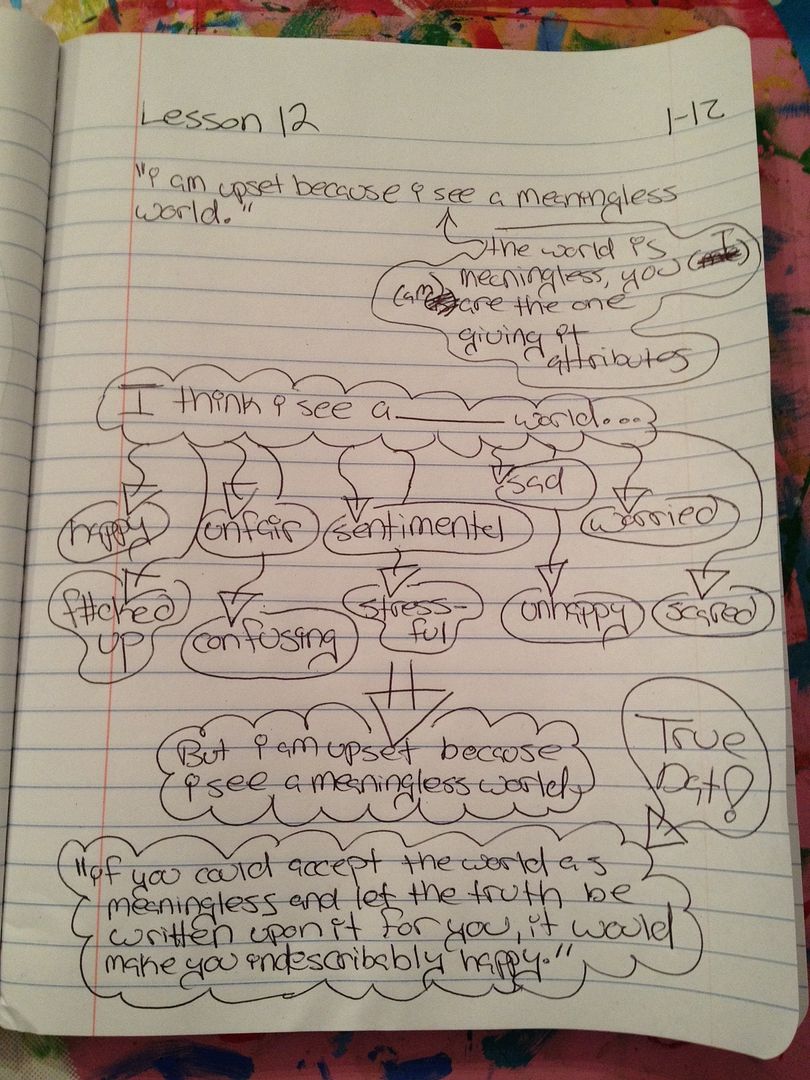 Lesson 12
1-12
"I am upset because i see a meaningless
world."
the world is
meaningless, you (I)
(am) are the one
giving it
attributes
I think i see a ______ world...
sad
happy
unfair
sentimental
worried
f#cked
up
confusing
stress-
ful
unhappy
scared
But i am upset because
i see a meaningless world.
True
Dat!
"If you could accept the world as
meaningless and let the truth be
written upon it for you, it would
make you indescribably happy."